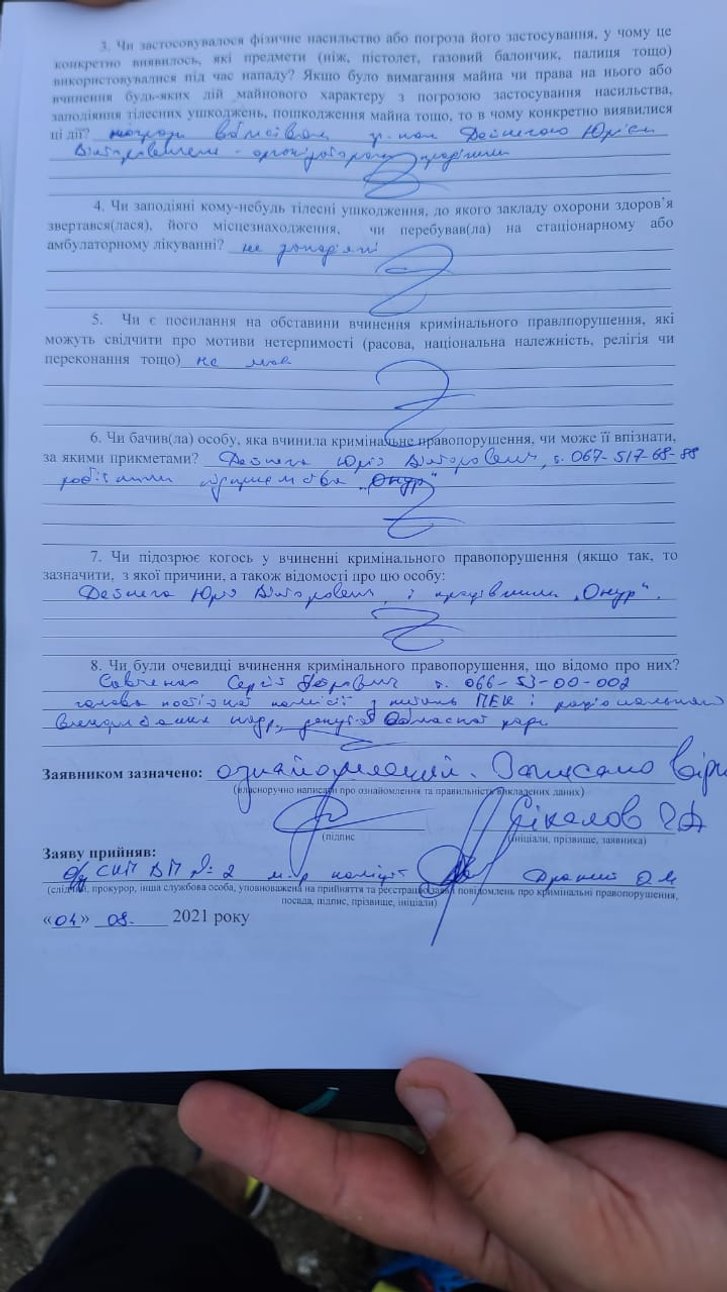 3. Чи застосовувалося фізичне насильство або погроза його застосування, у чому це
конкретно виявилось, які предмети (ніж, пістолет, газовий балончик, палиця тощо)
використовувалися під час нападу? Якщо було вимагання майна чи права на нього або
вчинення будь-яких дій майнового характеру з погрозою застосування насильства,
заподіяння тілесних ушкоджень, пошкодження майна тощо, то в чому конкретно виявилися
ці дії? погрози вбивством гр-ном Дейнегою Юрієм
Вікторовичем
4. Чи заподіяні кому-небудь тілесні ушкодження, до якого закладу охорони здоров’я
звертався(лася), його місцезнаходження, чи перебував(ла) на стаціонарному або
амбулаторному лікуванні? не заподіяні
5. Чи є посилання на обставини вчинення кримінального правлпорушення, які
можуть свідчити про мотиви нетерпимості (расова, національна належність, релігія чи
переконання тощо) не має
6. Чи бачив(ла) особу, яка вчинила кримінальне правопорушення, чи може її впізнати,
за якими прикметами? Дейнега Юрій Вікторович, т. 067-517-68-88
робітники підприємства „Онур“
7. Чи підозрює когось у вчиненні кримінального правопорушення (якщо так, то
зазначити, з якої причини, а також відомості про цю особу:
Дейнега Юрій Вікторович, і працівники „Онур“.
8. Чи були очевидці вчинення кримінального правопорушення, що відомо про них?
Савченко Сергій т. 066-53-00-002
голова постійної комісії з питань ПЕК і раціонального
використання надр, депутат обласної ради
Заявником зазначено: ознайомлений. Записано вірно
(власноручно написати про ознайомлення та правильність викладених даних)
(підпис
(ініціали, прізвище, заявника)
Заяву прийняв:
о/у СКП ВП № 2 м-р поліції О.М.
(слідчий, прокурор, інша службова особа, уповноважена на прийняття та реєстрацію заяв і повідомлень про кримінальні правопорушення,
посада, підпис, прізвище, ініціали)
«04» 08. 2021 року